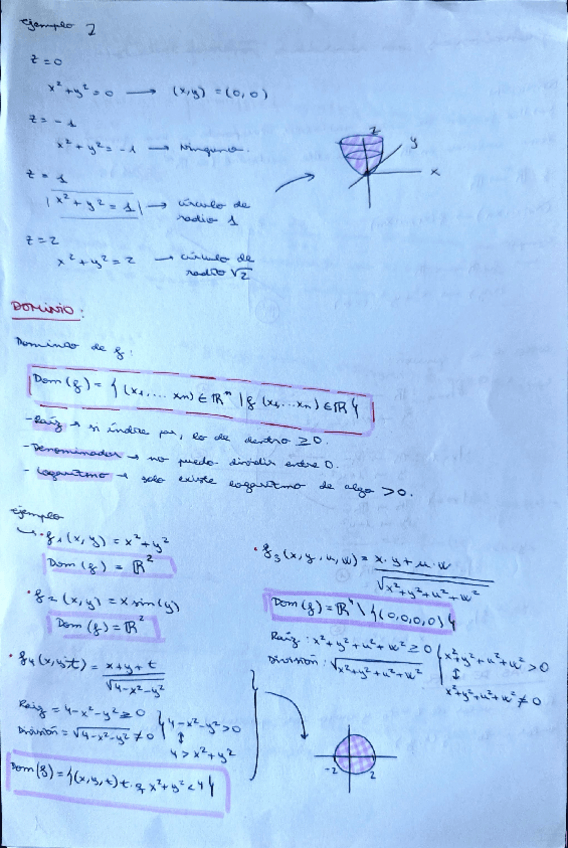 ejemplo 2
z=0
x²+y²=0 → (x,y) = (0,0)
z=-1
x²+y²=-1 → Ninguno.
z=1
|x²+y²=1| → círculo de
radio 1
z=2
x²+y²=2 → círculo de
radio √2
z
y
x
DOMINIO:
Dominio de f:
Dom(f) = {(x₁,...xn) ∈ ℝⁿ | f(x₁...xn) ∈ ℝ}
- Raíz → si índice par, lo de dentro ≥0.
- Denominador → no puedo dividir entre 0.
- Logaritmo → solo existe logaritmo de algo >0.
ejemplo
· f₁(x,y) = x²+y²
Dom(f) = ℝ²
· f₂(x,y) = x sin(y)
Dom(f) = ℝ²
· f₃(x,y,u,w) = x·y+u·w
√x²+y²+u²+w²
Dom(f) = ℝ⁴ \ {(0,0,0,0)}
Raíz: x²+y²+u²+w² ≥0 { x²+y²+u²+w² >0
División: √x²+y²+u²+w² ↕
x²+y²+u²+w² ≠0
· f₄(x,y,t) = x+y+t
√4-x²-y²
Raíz = 4-x²-y² ≥0 { 4-x²-y²>0
División = √4-x²-y² ≠0 ↕
4 > x²+y²
Dom(f) = {(x,y,t) t.q x²+y²<4}
-2 2